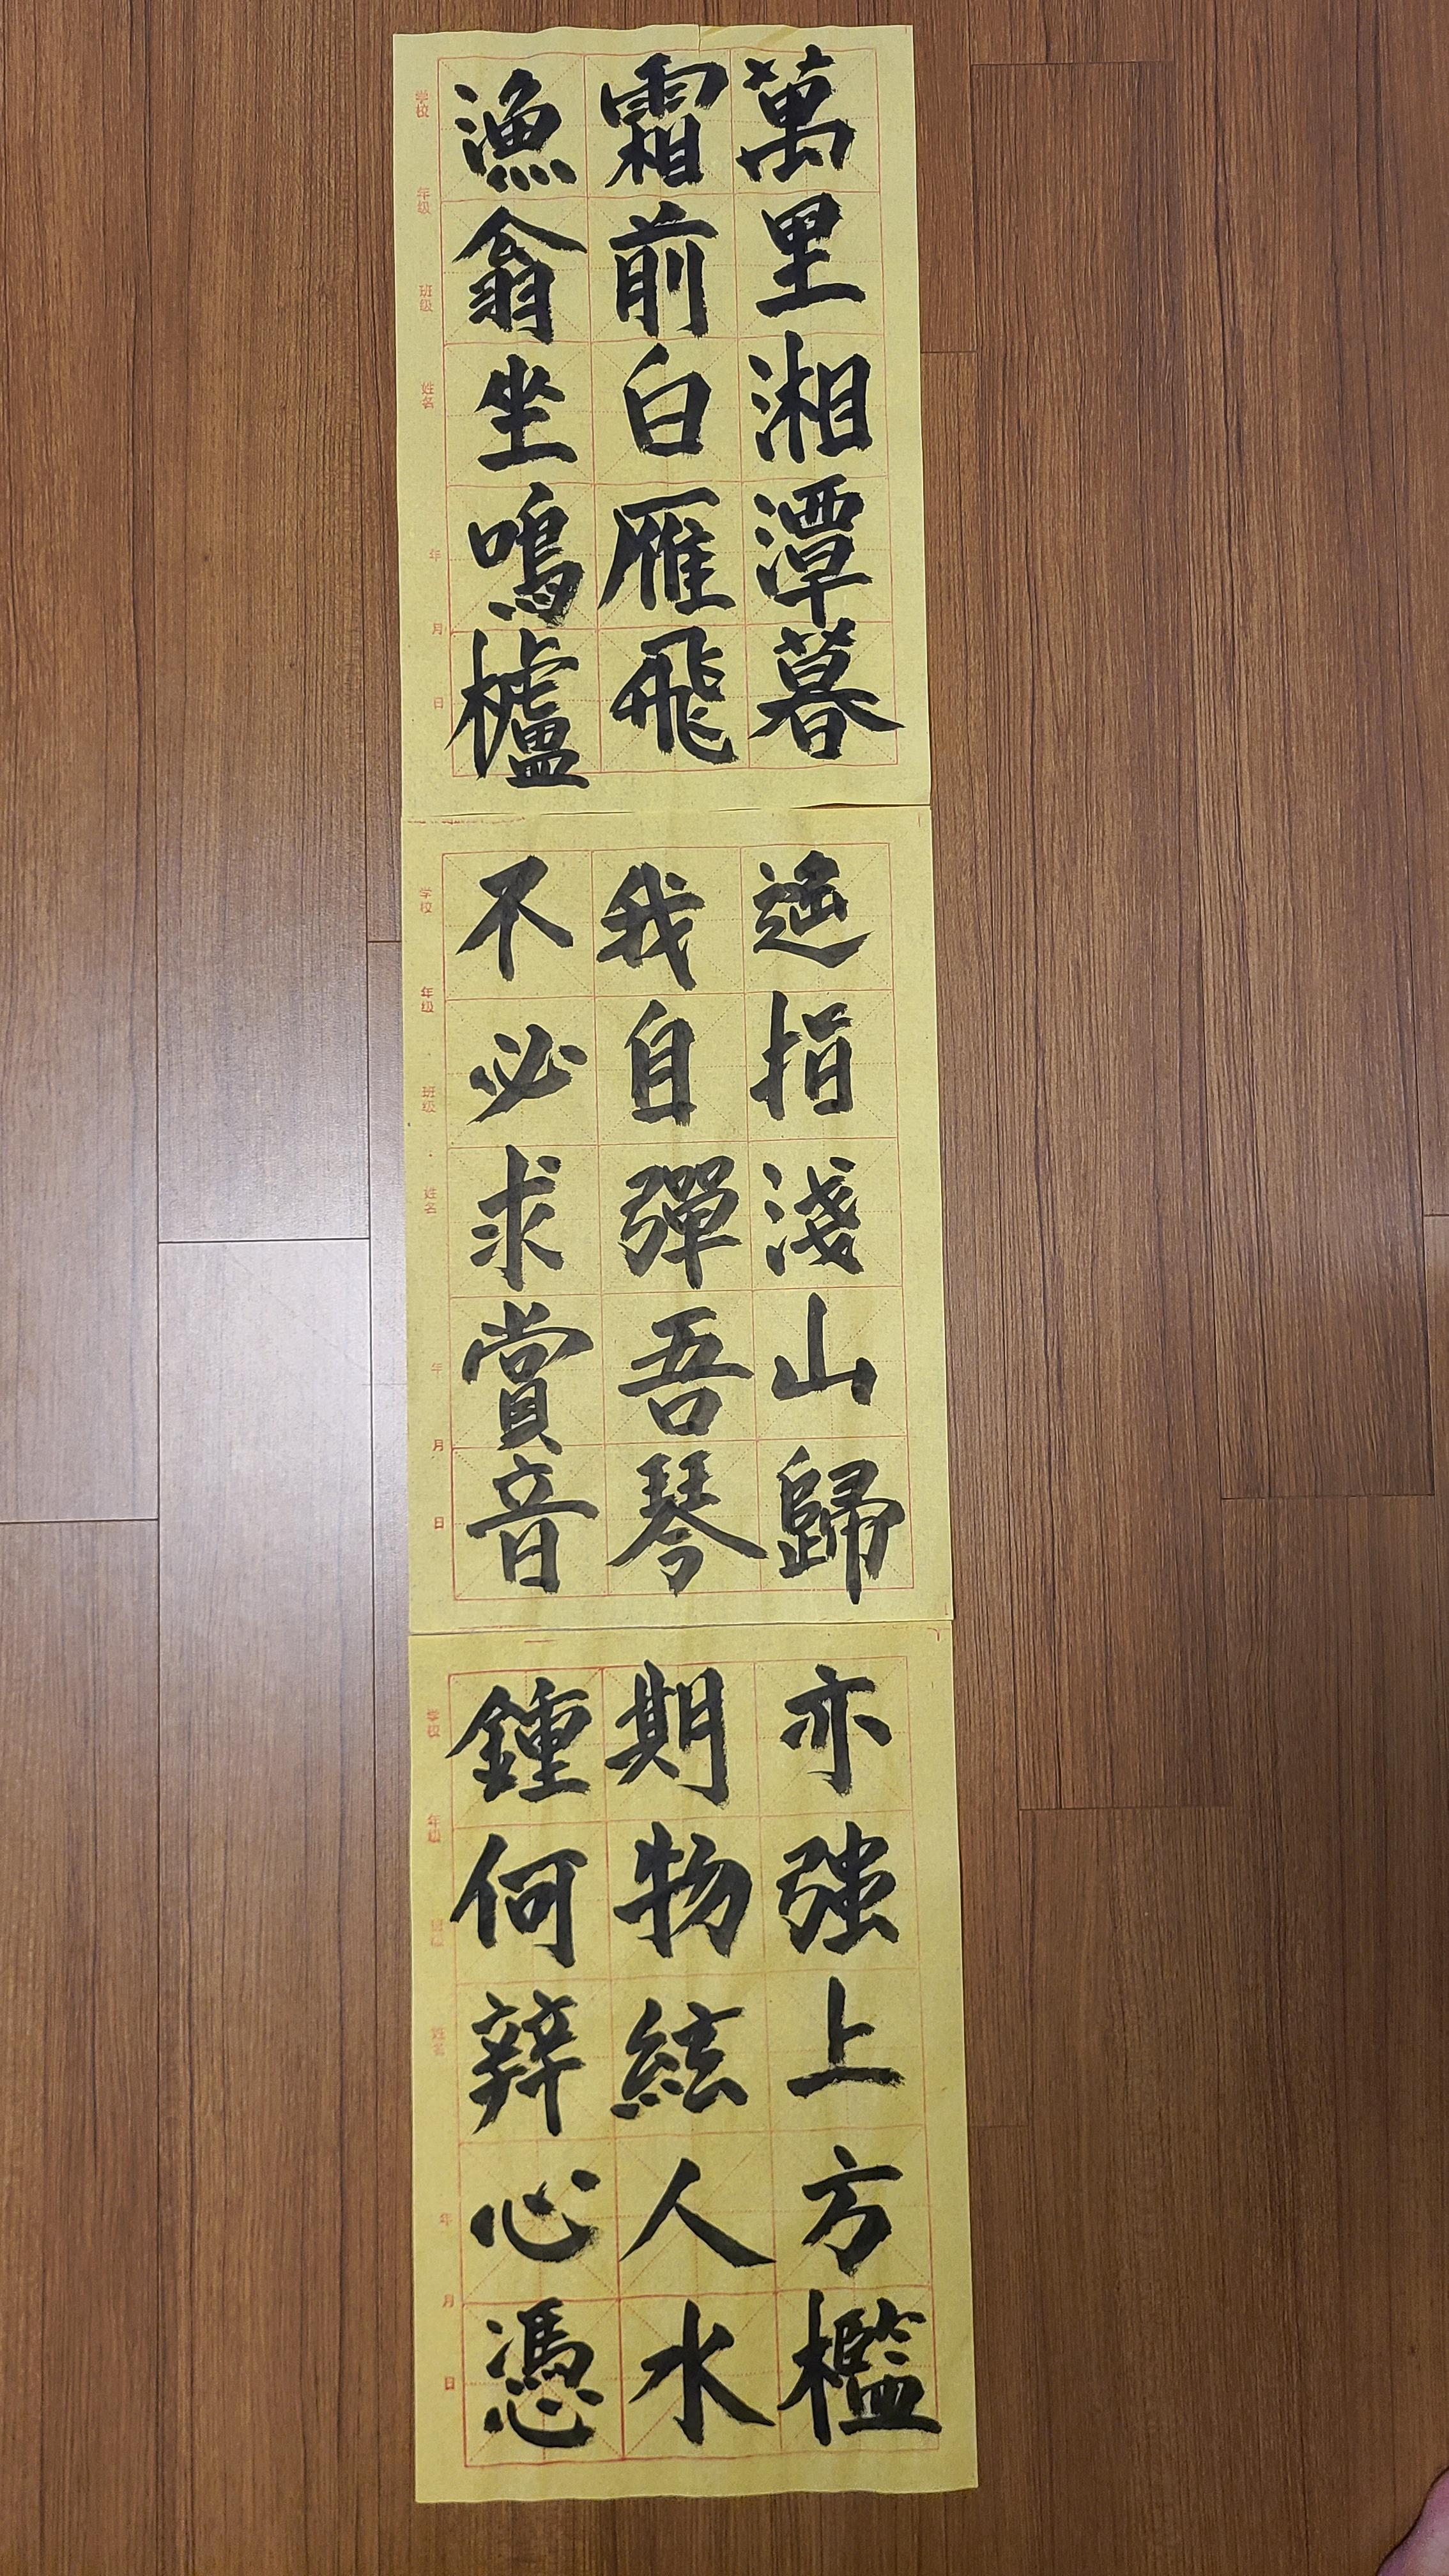 萬里湘潭暮
霜前白雁飛
漁翁坐鳴櫨
学校 年级 班级 姓名 年 月 日
遥指淺山歸
我自彈吾琴
不必求賞音
学校 年级 班级 姓名 年 月 日
亦強上方檻
期物絃人水
鍾何辨心憑
学校 年级 班级 姓名 年 月 日